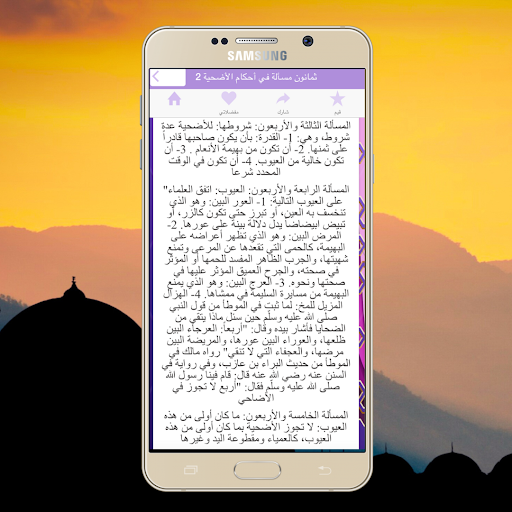 SAMSUNG
ثمانون مسألة في أحكام الأضحية 2
قيم
شارك
مفضلاتي
المسألة الثالثة والأربعون: شروطها: للأضحية عدة
شروط، وهي: 1- القدرة: بأن يكون صاحبها قادراً
على ثمنها. 2- أن تكون من بهيمة الأنعام . 3- أن
تكون خالية من العيوب. 4- أن تكون في الوقت
المحدد شرعا
المسألة الرابعة والأربعون: العيوب: اتفق العلماء"
على العيوب التالية: 1- العور البين: وهو الذي
تنخسف به العين، أو تبرز حتى تكون كالزر، أو
تبيض ابيضاضاً يدل دلالة بينة على عورها. 2-
المرض البين: وهو الذي تظهر أعراضه على
البهيمة، كالحمى التي تقعدها عن المرعى وتمنع
شهيتها، والجرب الظاهر المفسد للحمها أو المؤثر
في صحته، والجرح العميق المؤثر عليها في
صحتها ونحوه. 3- العرج البين: وهو الذي يمنع
البهيمة من مسايرة السليمة في ممشاها. 4- الهزال
المزيل للمخ: لما ثبت في الموطأ من قول النبي
صلى الله عليه وسلم حين سئل ماذا يتقي من
الضحايا فأشار بيده وقال: "أربعاً: العرجاء البين
ظلعها، والعوراء البين عورها، والمريضة البين
مرضها، والعجفاء التي لا تنقي" رواه مالك في
الموطأ من حديث البراء بن عازب، وفي رواية في
السنن عنه رضي الله عنه قال: قام فينا رسول الله
صلى الله عليه وسلم فقال: "أربع لا تجوز في
الأضاحي
المسألة الخامسة والأربعون: ما كان أولى من هذه
العيوب: لا تجوز الأضحية بما كان أولى من هذه
العيوب، كالعمياء ومقطوعة اليد وغيرها